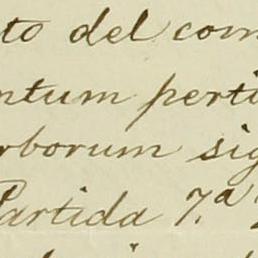 to del com
ntum perti
rborum sig
Partida 7.ª